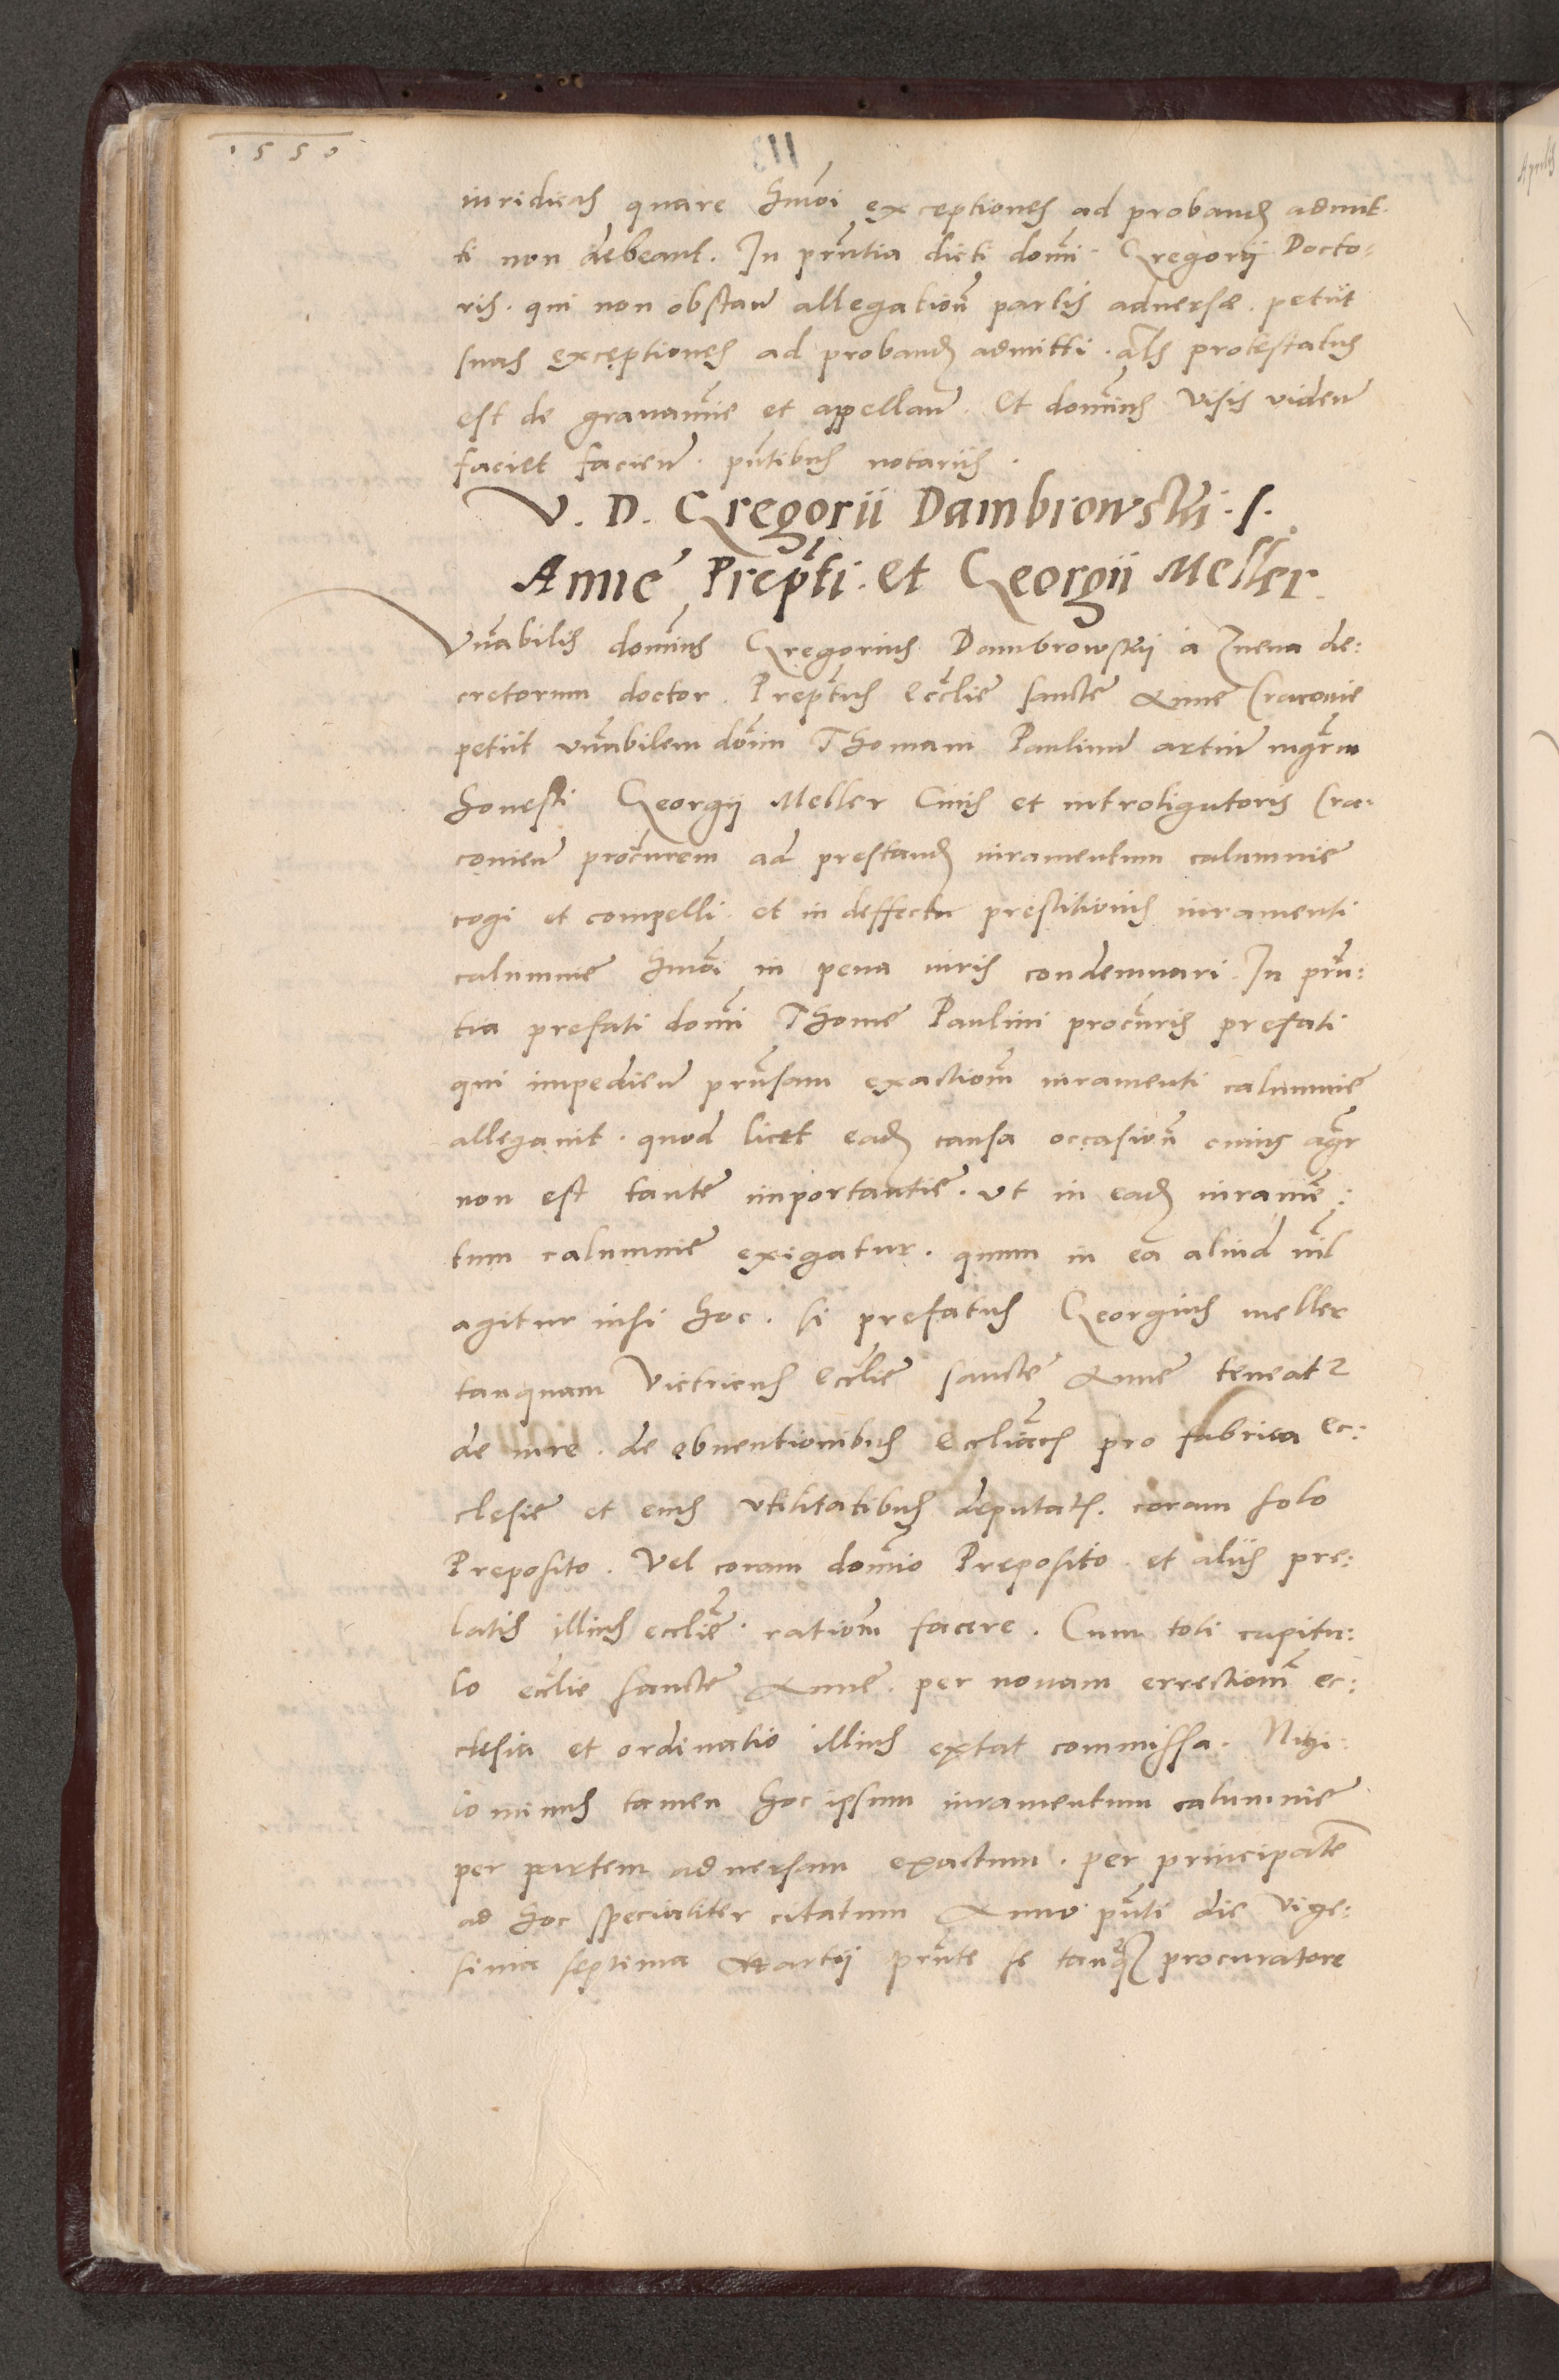 1550
113
iuridicas quare hmoi exceptiones ad proband admit-
ti non debeant. In prntia dicti domi Gregorij Docto-
ris. qui non obstan allegation partis adversæ. petiit
suas exceptiones ad proband admitti. als protestatus
est de gravamie et appellan. Et dominus visis viden
faciet facien. pntibus notariis.
V. D. Gregorii Dambrowskii. S.
Anne Prepti. et Georgii Meller.
Vnabilis dominus Gregorius Dambrowskij a Znena de:
cretorum doctor. Preptus Ecclie sancte Anne Cracovie
petiit vnabilem domin Thomam Paulinu artiu mgrm
honesti Georgij Meller Civis et introligatoris Cra-
covien procurem ad prestand iuramentum calumnie
cogi et compelli. et in deffectu prestitionis iuramenti
calumnie hmoi in pena iuris condemnari. In prn:
tia prefati domi Thome Paulini procuris prefati
qui impedien prnsam exactiom iuramenti calumnie
allegavit. quod licet ead causa occasion cuius agr
non est tante importantie. ut in ead iuramē:
tum calumnie exigatur. quum in ea aliud nil
agitur nisi hoc. si prefatus Georgius meller
tanquam vitricus Ecclie sancte Anne teneat
de iure. de obventionibus eccliacis pro fabrica ec:
clesie et eius utilitatibus deputatis. coram solo
Preposito. Vel coram domio Preposito. et aliis pre:
latis illius ecclie. rationm facere. Cum toti capitu:
lo ecclie sancte Anne. per novam errectionm ec:
clesia et ordinatio illius extat commissa. Nihi-
lominus tamen hoc ipsum iuramentum calumnie
per partem adversam exactum. per principalē
ad hoc specialiter citatum Anno pnti die vige:
sima septima Martij prnte se tanq procuratore